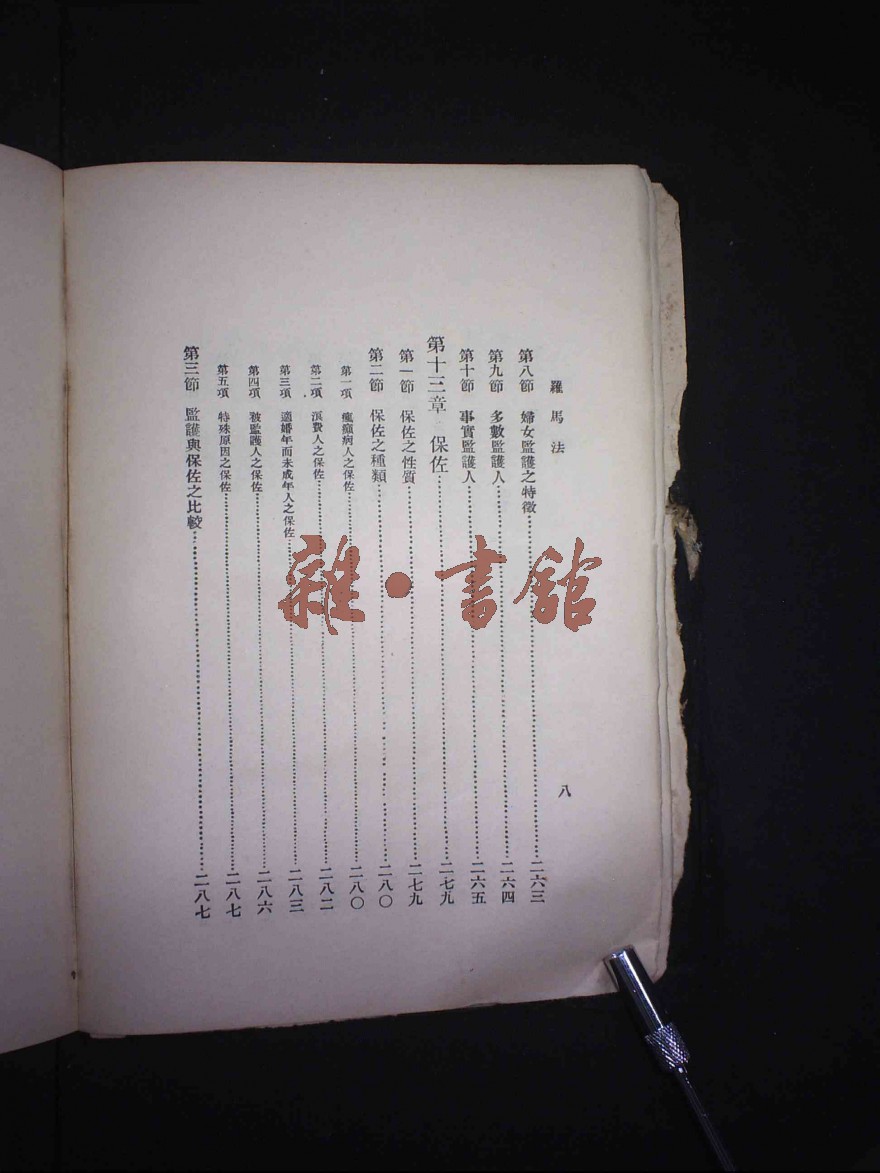 羅馬法
八
第八節 婦女監護之特徵……二六三
第九節 多數監護人……二六四
第十節 事實監護人……二六五
第十三章 保佐……二七九
第一節 保佐之性質……二七九
第二節 保佐之種類……二八〇
第一項 瘋癲病人之保佐……二八〇
第二項 浪費人之保佐……二八二
第三項 適婚年而未成年人之保佐……二八三
第四項 被監護人之保佐……二八六
第五項 特殊原因之保佐……二八七
第三節 監護與保佐之比較……二八七
雜·書館